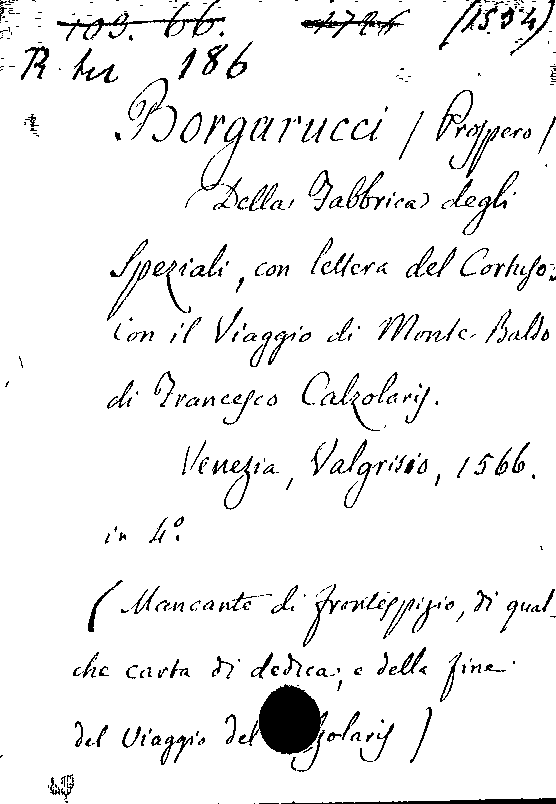 103. 66. (1534)
R 186
Borgarucci (Prospero)
Della Fabbrica degli
Speziali, con lettera del Cortuso:
con il Viaggio di Monte-Baldo
di Francesco Calzolaris.
Venezia, Valgrisio, 1566.
in 4º.
(Mancante di frontespizio, di qual-
che carta di dedica, e della fine
del Viaggio del